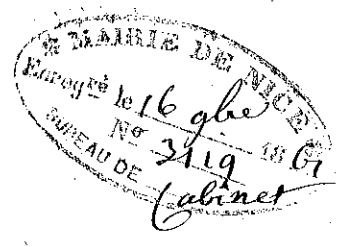 MAIRIE DE NICE
Enregté le 16 9bre 1861
No 3119
BUREAU DE Cabinet